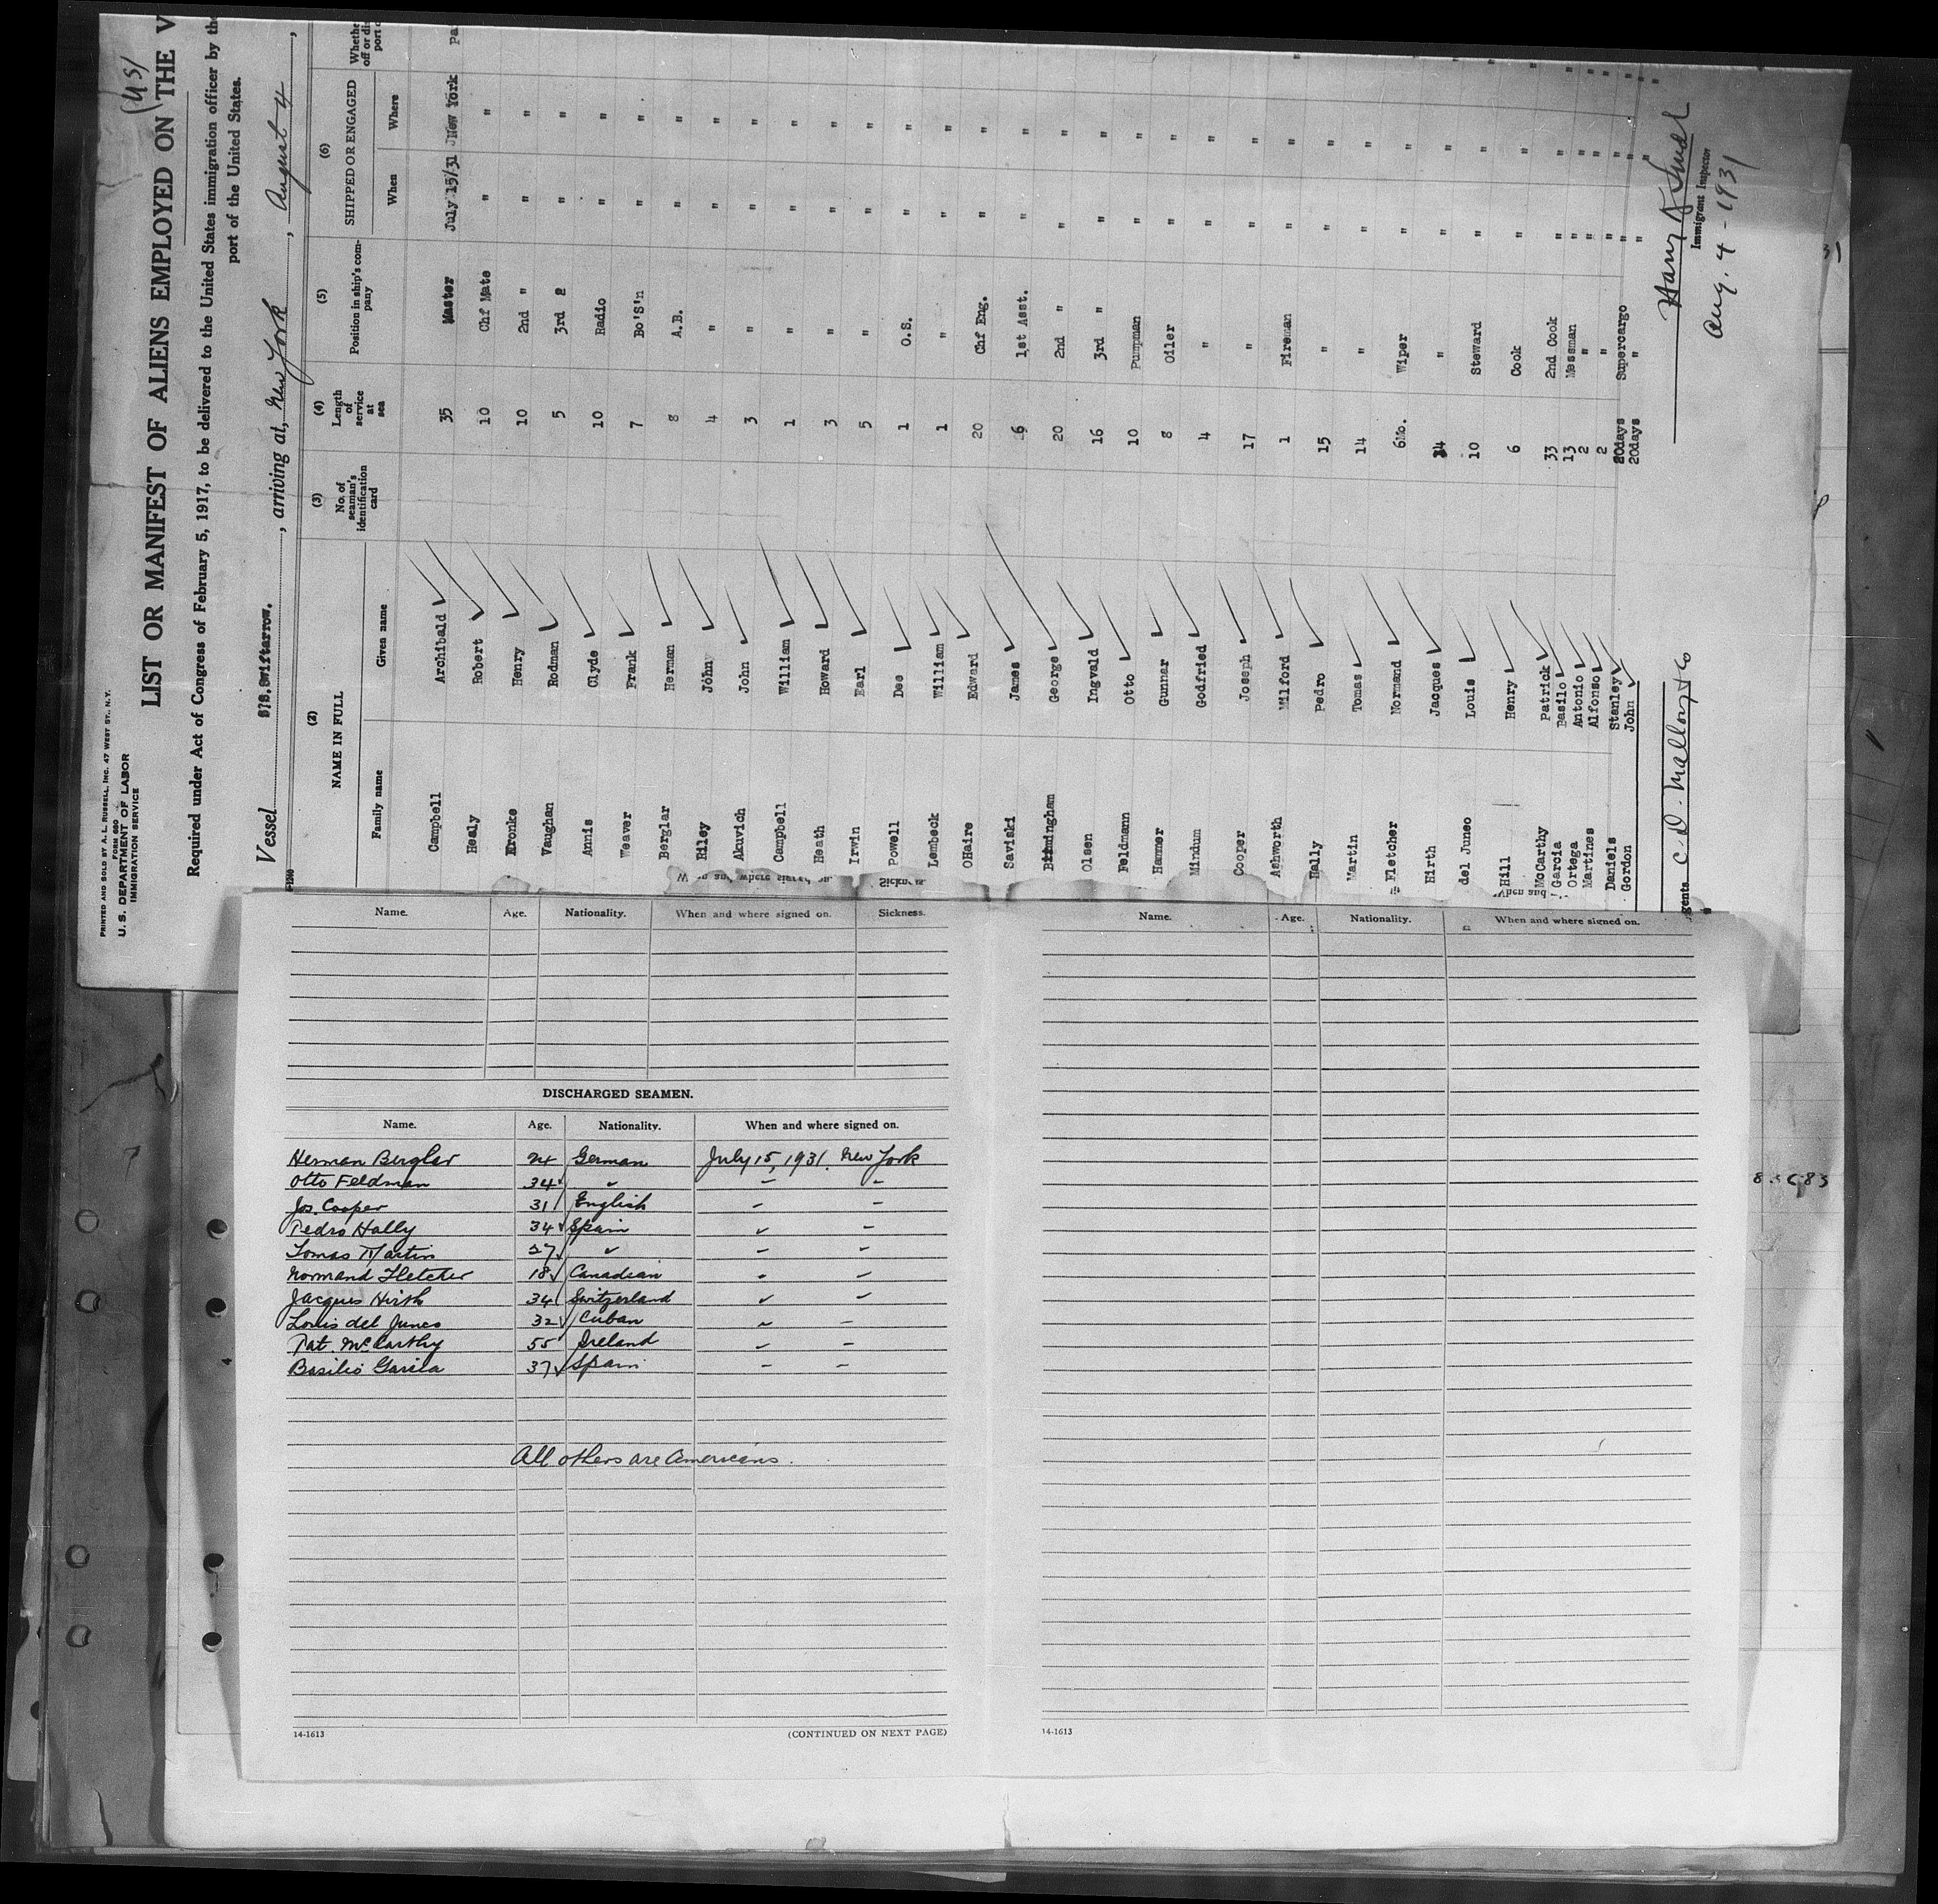 PRINTED AND SOLD BY A. L. RUSSELL, INC. 47 WEST ST., N.Y.
FORM 680
U. S. DEPARTMENT OF LABOR
IMMIGRATION SERVICE
(US)
LIST OR MANIFEST OF ALIENS EMPLOYED ON THE V
Required under Act of Congress of February 5, 1917, to be delivered to the United States immigration officer by the
port of the United States.
Vessel S/S. Swiftarrow. , arriving at, New York , August 4 ,
(2) NAME IN FULL (3) No. of seaman's identification card (4) Length of service at sea (5) Position in ship's company (6) SHIPPED OR ENGAGED
Family name Given name When Where
Campbell Archibald 35 Master July 15/31 New York Pa
Healy Robert 10 Chf Mate " "
Kronke Henry 10 2nd " " "
Vaughan Rodman 5 3rd " "
Annis Clyde 10 Radio " "
Weaver Frank 7 Bo'S'n " "
Berglar Herman 8 A.B. " "
Riley John 4 " " "
Akuvich John 3 " " "
Campbell William 1 " " "
Heath Howard 3 " " "
Irwin Earl 5 " " "
Powell Dee 1 O.S. " "
Lembeck William 1 " " "
OHaire Edward 20 Chf Eng. " "
Saviski James 6 1st Asst. " "
Birmingham George 20 2nd " " "
Olsen Ingvald 16 3rd " " "
Feldmann Otto 10 Pumpman " "
Hanner Gunnar 8 Oiler " "
Mindum Godfried 4 " " "
Cooper Joseph 17 " " "
Ashworth Milford 1 Fireman " "
Hally Pedro 15 " " "
Martin Tomas 14 " " "
Fletcher Normand 6Mo. Wiper " "
Hirth Jacques 14 " " "
del Junco Louis 10 Steward " "
Hill Henry 6 Cook " "
McCarthy Patrick 33 2nd Cook " "
Garcia Basilo 13 Messman " "
Ortega Antonio 2 " " "
Martines Alfonso 2 " " "
Daniels Stanley 20days Supercargo " "
Gordon John 20days " " "
gents C. D. Mallory & Co
Immigrant Inspector
Aug. 4 - 1931
Name. Age. Nationality. When and where signed on. Sickness.
DISCHARGED SEAMEN.
Name. Age. Nationality. When and where signed on.
Herman Berglar 24 German July 15, 1931. New York
Otto Feldman 34 "
Jos. Cooper 31 English
Pedro Hally 34 Spain
Tomas Martin 27 "
Normand Fletcher 18 Canadian
Jacques Hirth 34 Switzerland
Louis del Junco 32 Cuban
Pat. McCarthy 55 Ireland
Basilio Garcia 37 Spain
All others are Americans.
14-1613 (CONTINUED ON NEXT PAGE)
Name. Age. Nationality. When and where signed on.
14-1613